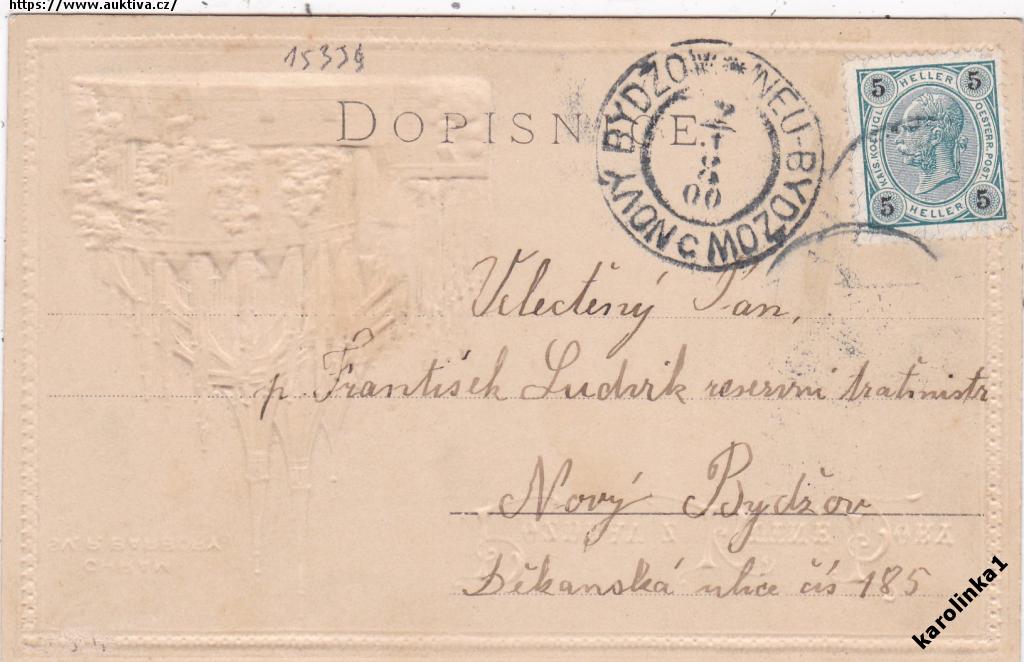 https://www.auktiva.cz/
15339
DOPISNICE.
NOVÝ BYDŽOV * NEU-BYDZOW
2/8
00
5 HELLER 5
KAIS. KOENIGL. OESTERR. POST.
5 HELLER 5
Velectěný Pan,
p František Ludvík reservní tratmistr
Nový Bydžov
Děkanská ulice čís 185
CHRÁM
SV. BARBORY
karolinka1